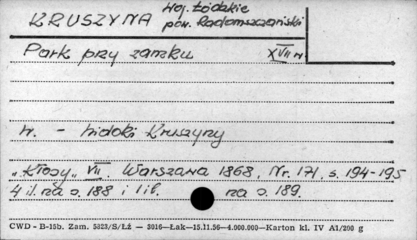 KRUSZYNA Woj. Łódzkie
pow. Radomszczański
Park przy zamku XVII w.
w. - widoki Kruszyny
"Kłosy" VII. Warszawa 1868, Nr. 171, s. 194-195
4 il. na s. 188 i 1 il. na s. 189.
CWD - B-15b. Zam. 5323/S/Łź — 3016—Łak—15.11.56—4.000.000—Karton kl. IV A1/200 g